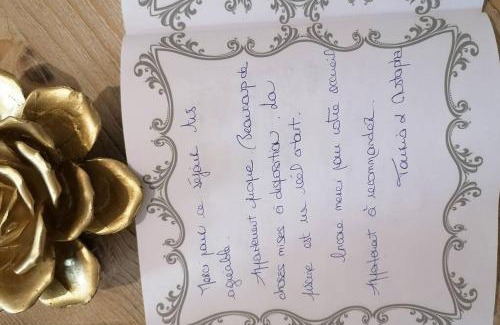 Merci pour ce séjour très
agréable.
Appartement unique. Beaucoup de
choses mises à disposition. La
est un réel atout.
Encore merci pour votre accueil
Appartement à recommander.